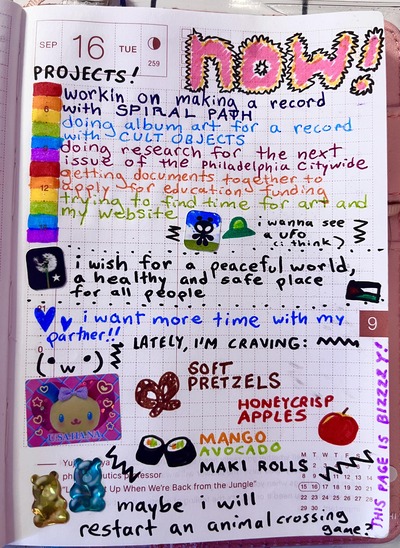 SEP 16 TUE
259
NOW!
PROJECTS!
workin on making a record
with SPIRAL PATH
doing album art for a record
with CULT OBJECTS
doing research for the next
issue of the Philadelphia Citywide
getting documents together to
apply for education funding
trying to find time for art and
my website
6
12
i wanna see
a ufo
(i think)
i wish for a peaceful world,
a healthy and safe place
for all people
i want more time with my
partner!!
9
LATELY, I'M CRAVING:
(•w•)
SOFT
PRETZELS
HONEYCRISP
APPLES
USAHANA
MANGO
AVOCADO
MAKI ROLLS
THIS PAGE IS BIZZZZY!
Up When We're Back from the Jungle"
professor
M T W T F S S
1 2 3 4 5 6 7
8 9 10 11 12 13 14
15 16
29 30
maybe i will
restart an animal crossing
game?